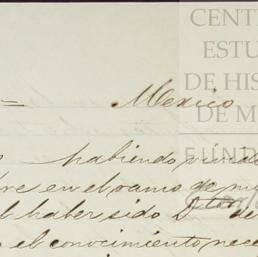 CENT
ESTU
DE HIS
DE M
FUND
= Mexico
habiendo
re en el ramo de mi
l haber sido D de
el conocimiento nece